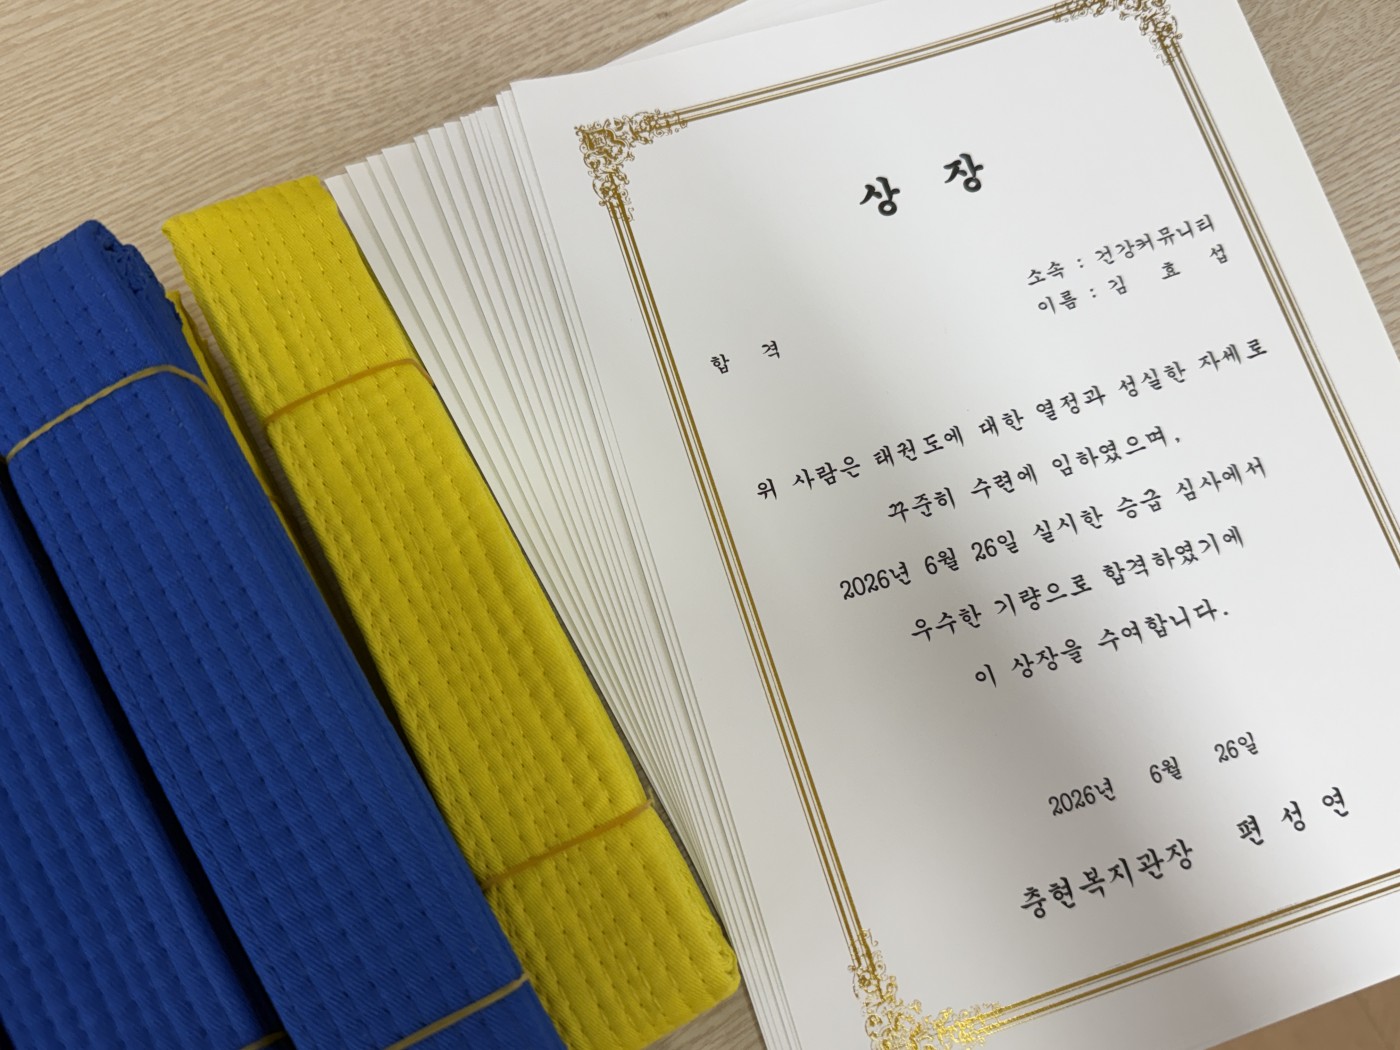 상 장
소속 : 건강커뮤니티
이름 : 김 효 섭
합 격
위 사람은 태권도에 대한 열정과 성실한 자세로
꾸준히 수련에 임하였으며,
2026년 6월 26일 실시한 승급 심사에서
우수한 기량으로 합격하였기에
이 상장을 수여합니다.
2026년 6월 26일
충현복지관장 편 성 연